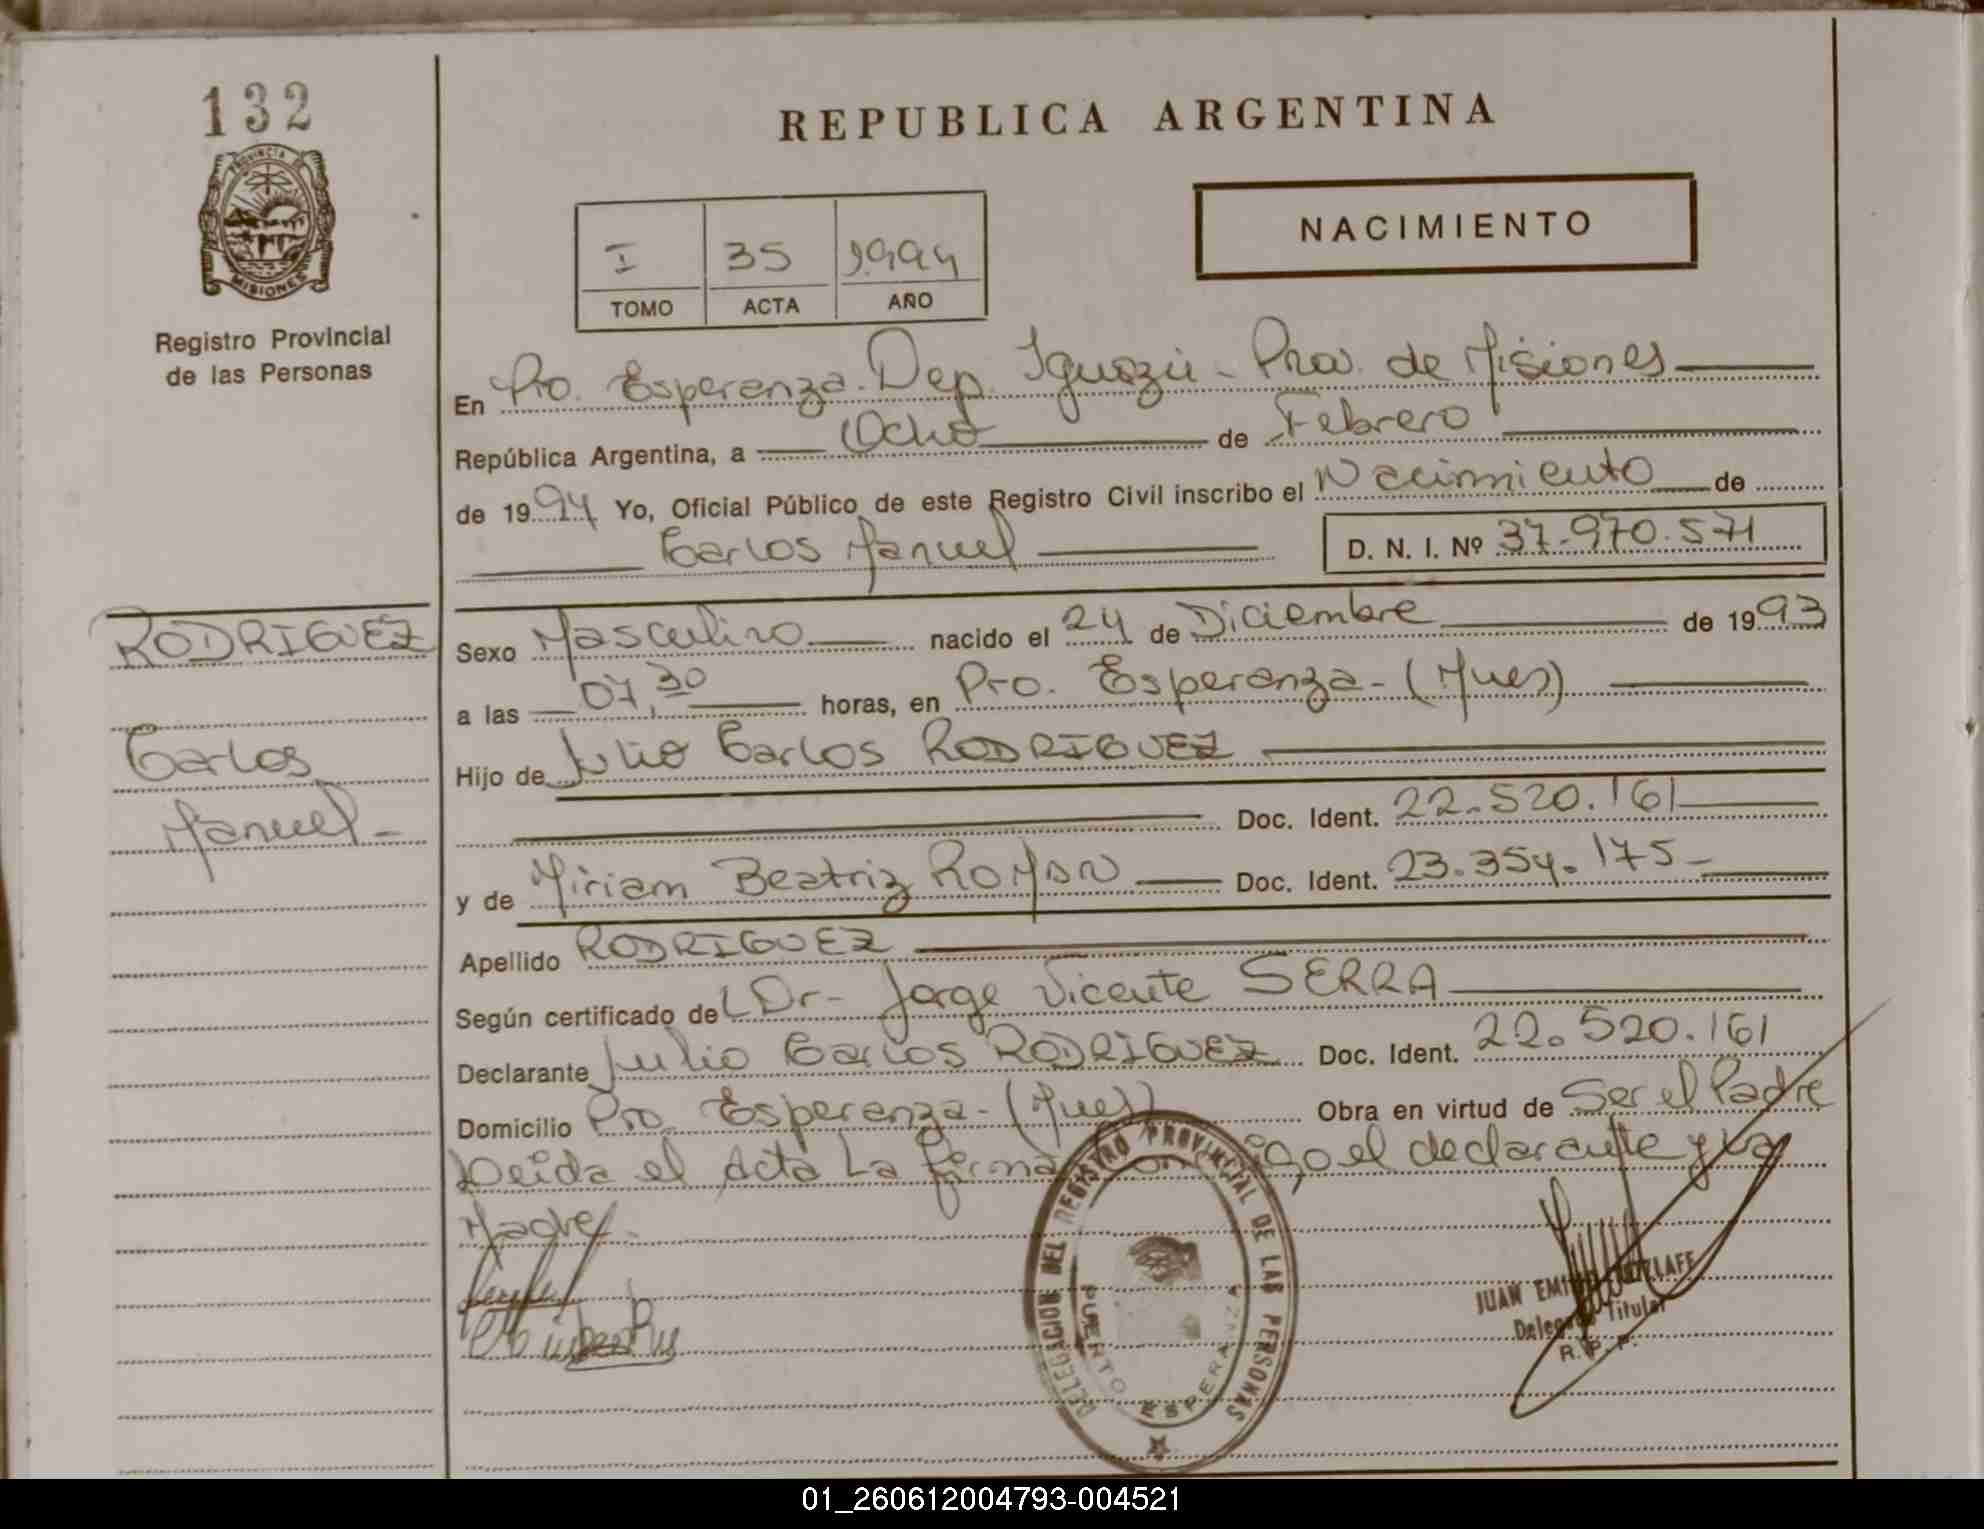 132
PROVINCIA DE
MISIONES
Registro Provincial
de las Personas
REPUBLICA ARGENTINA
NACIMIENTO
I 35 1.994
TOMO ACTA AÑO
En Pto. Esperanza. Dep. Iguazú - Prov. de Misiones
República Argentina, a Ocho de Febrero
de 1994 Yo, Oficial Público de este Registro Civil inscribo el Nacimiento de
Carlos Manuel D. N. I. Nº 37.970.571
RODRIGUEZ
Carlos
Manuel
Sexo Masculino nacido el 24 de Diciembre de 1993
a las 07,30 horas, en Pto. Esperanza - (Mnes)
Hijo de Julio Carlos RODRIGUEZ
Doc. Ident. 22.520.161
y de Miriam Beatriz ROMAN Doc. Ident. 23.354.175
Apellido RODRIGUEZ
Según certificado del Dr- Jorge Vicente SERRA
Declarante Julio Carlos RODRIGUEZ Doc. Ident. 22.520.161
Domicilio Pto. Esperanza - (Mnes) Obra en virtud de Ser el Padre
Leida el Acta La firma el declarante y la
Madre.
DELEGACION DEL REGISTRO PROVINCIAL DE LAS PERSONAS
PUERTO ESPERANZA
JUAN
Delegado Titular
R. P. P.
01_260612004793-004521